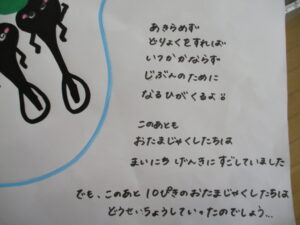 あきらめず
どりょくをすれば
いつかかならず
じぶんのために
なるひがくるよ
このあとも
おたまじゃくしたちは
まいにちげんきにすごしていました
でも、このあと10ぴきのおたまじゃくしたちは
どうせいちょうしていったのでしょう...